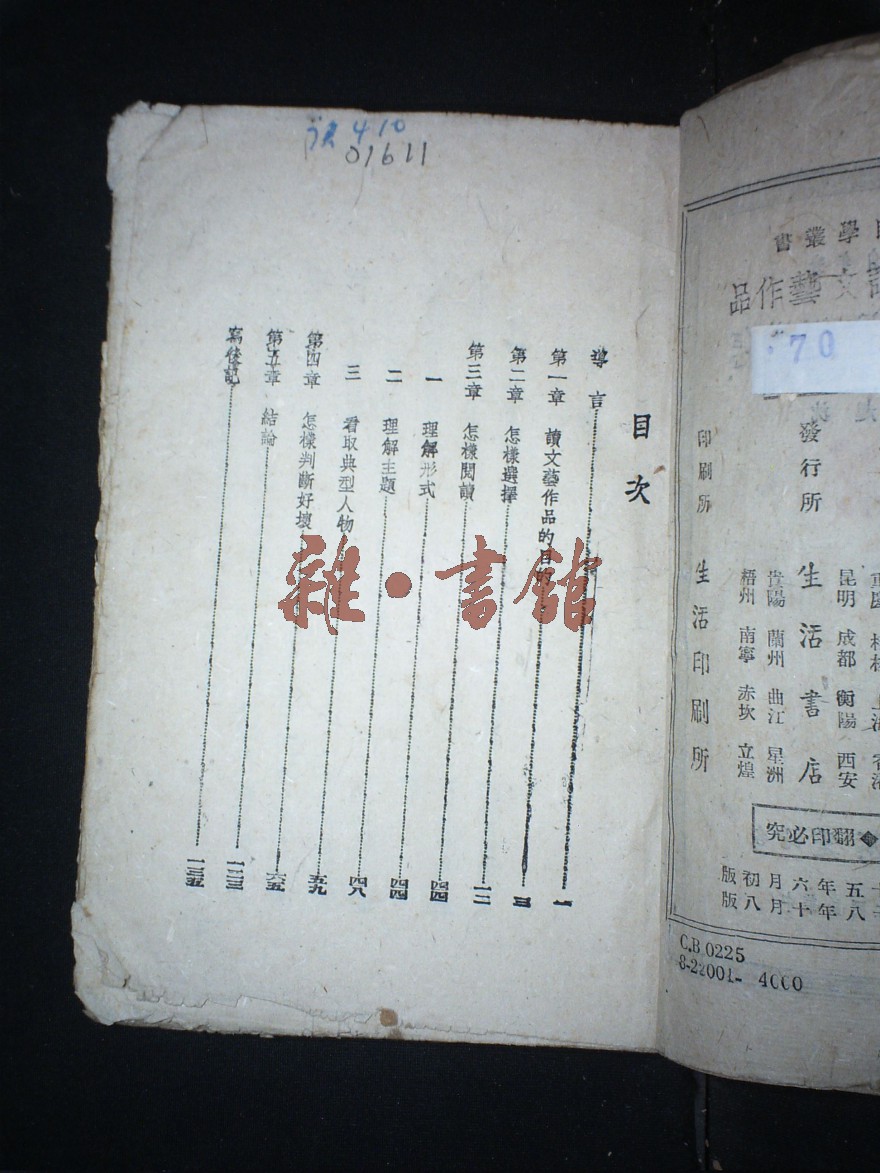 讀 410
01611
目次
導言……一
第一章 讀文藝作品的目的……三
第二章 怎樣選擇……一二
第三章 怎樣閱讀……四四
一 理解形式……四四
二 理解主題……四八
三 看取典型人物……五九
第四章 怎樣判斷好壞……六五
第五章 結論……一三三
寫後記……一三五
雜·書館
學叢書
文藝作品
70
發行所 生活書店
昆明 成都 衡陽 西安
貴陽 蘭州 曲江 星洲
梧州 南寧 赤坎 立煌
印刷所 生活印刷所
◆翻印必究
五年六月初版
八年十月八版
C.B.0225
8-22001- 4000